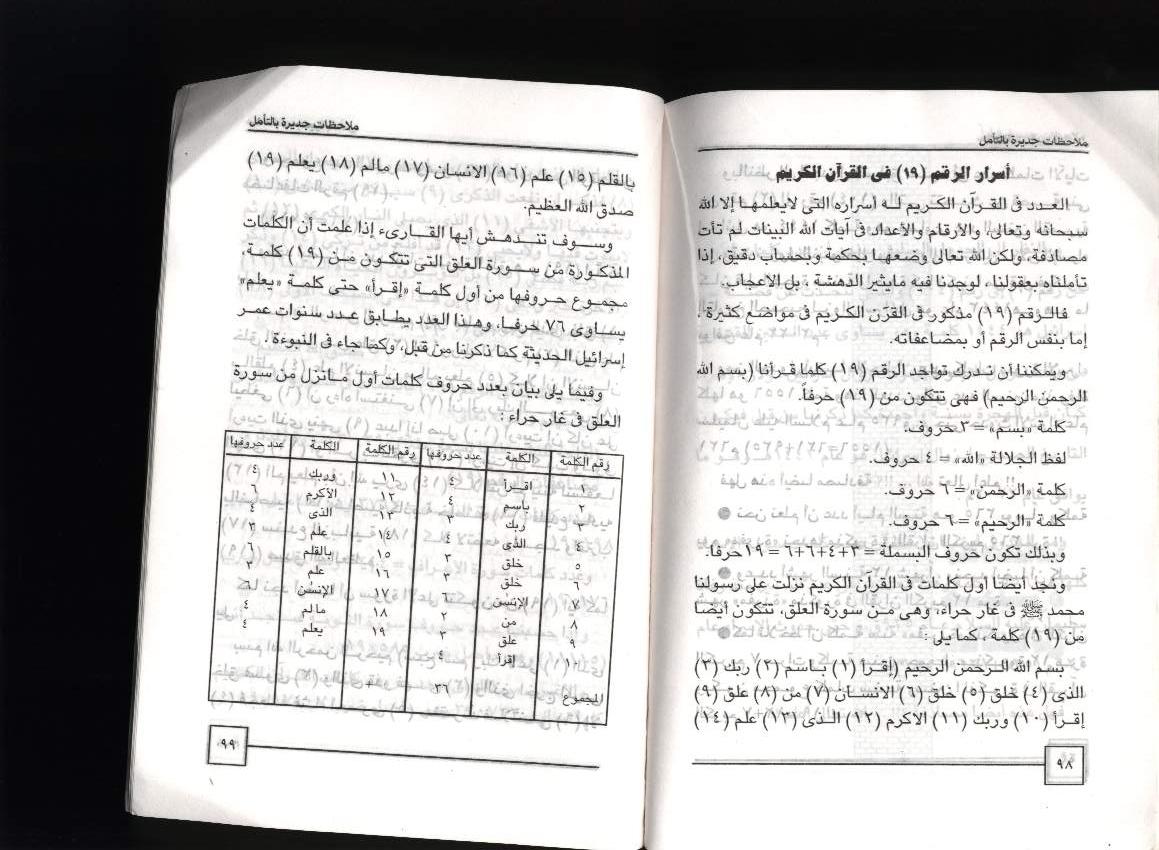 ملاحظات جديرة بالتأمل
أسرار الرقم (١٩) فى القرآن الكريم
العدد فى القرآن الكريم له أسراره التى لايعلمها إلا الله
سبحانه وتعالى، والأرقام والأعداد فى آيات الله البينات لم تأت
مصادفة، ولكن الله تعالى وضعها بحكمة وبحساب دقيق، إذا
تأملناه بعقولنا، لوجدنا فيه مايثير الدهشة ، بل الاعجاب.
فالرقم (١٩) مذكور فى القرآن الكريم فى مواضع كثيرة ،
إما بنفس الرقم أو بمضاعفاته.
ويمكننا أن ندرك تواجد الرقم (١٩) كلما قرأنا (بسم الله
الرحمن الرحيم) فهى تتكون من (١٩) حرفاً.
كلمة «بسم» = ٣ حروف.
لفظ الجلالة «الله» = ٤ حروف.
كلمة «الرحمن» = ٦ حروف.
كلمة «الرحيم» = ٦ حروف.
وبذلك تكون حروف البسملة = ٣+٤+٦+٦ = ١٩ حرفا.
ونجد أيضا أول كلمات فى القرآن الكريم نزلت على رسولنا
محمد ﷺ فى غار حراء، وهى من سورة العلق، تتكون أيضا
من (١٩) كلمة ، كما يلى :
بسم الله الرحمن الرحيم (إقرأ (١) باسم (٢) ربك (٣)
الذى (٤) خلق (٥) خلق (٦) الانسان (٧) من (٨) علق (٩)
إقرأ (١٠) وربك (١١) الاكرم (١٢) الذى (١٣) علم (١٤)
٩٨
ملاحظات جديرة بالتأمل
بالقلم (١٥) علم (١٦) الانسان (١٧) مالم (١٨) يعلم (١٩)
صدق الله العظيم.
وسوف تندهش أيها القارىء إذا علمت أن الكلمات
المذكورة من سورة العلق التى تتكون من (١٩) كلمة،
مجموع حروفها من أول كلمة «إقرأ» حتى كلمة «يعلم»
يساوى ٧٦ حرفا، وهذا العدد يطابق عدد سنوات عمر
إسرائيل الحديثة كما ذكرنا من قبل، وكما جاء فى النبوءة .
وفيما يلى بيان بعدد حروف كلمات أول مانزل من سورة
العلق فى غار حراء :
رقم الكلمة الكلمة عدد حروفها رقم الكلمة الكلمة عدد حروفها
١ اقرأ ٤ ١١ وربك ٤
٢ باسم ٤ ١٢ الأكرم ٦
٣ ربك ٣ ١٣ الذى ٤
٤ الذى ٤ ١٤ علم ٣
٥ خلق ٣ ١٥ بالقلم ٦
٦ خلق ٣ ١٦ علم ٣
٧ الإنسٰن ٦ ١٧ الإنسٰن ٦
٨ من ٢ ١٨ مالم ٤
٩ علق ٣ ١٩ يعلم ٤
١٠ إقرأ ٤
المجموع ٣٦ +
٩٩